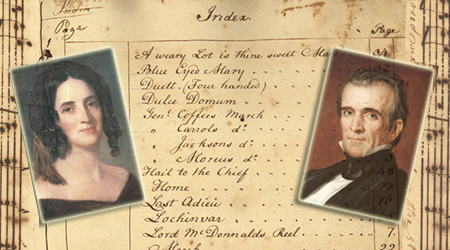 Index
Page
Index.
Page
A weary Lot is thine sweet Ma
Blue Eyed Mary
Duett (Four handed)
Dulce Domum
Genl Coffees March
" Carrols do.
Jacksons do.
" Moreus do.
Hail to the Chief
Home
Last Adieu
Lochinvar
Lord McDonnalds Reel
7.
22